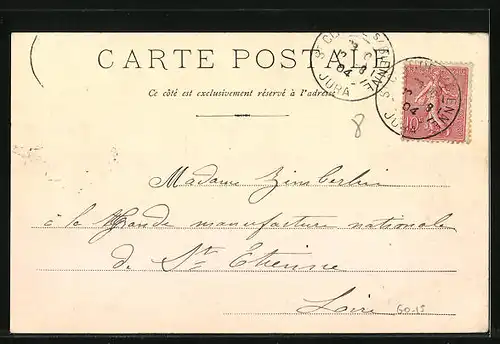 CARTE POSTALE
Ce côté est exclusivement réservé à l'adresse
JURA
04
8
10
JURA
04
8
Madame Zimberlin
à la Grande manufacture nationale
de St Etienne
Loire
60-15